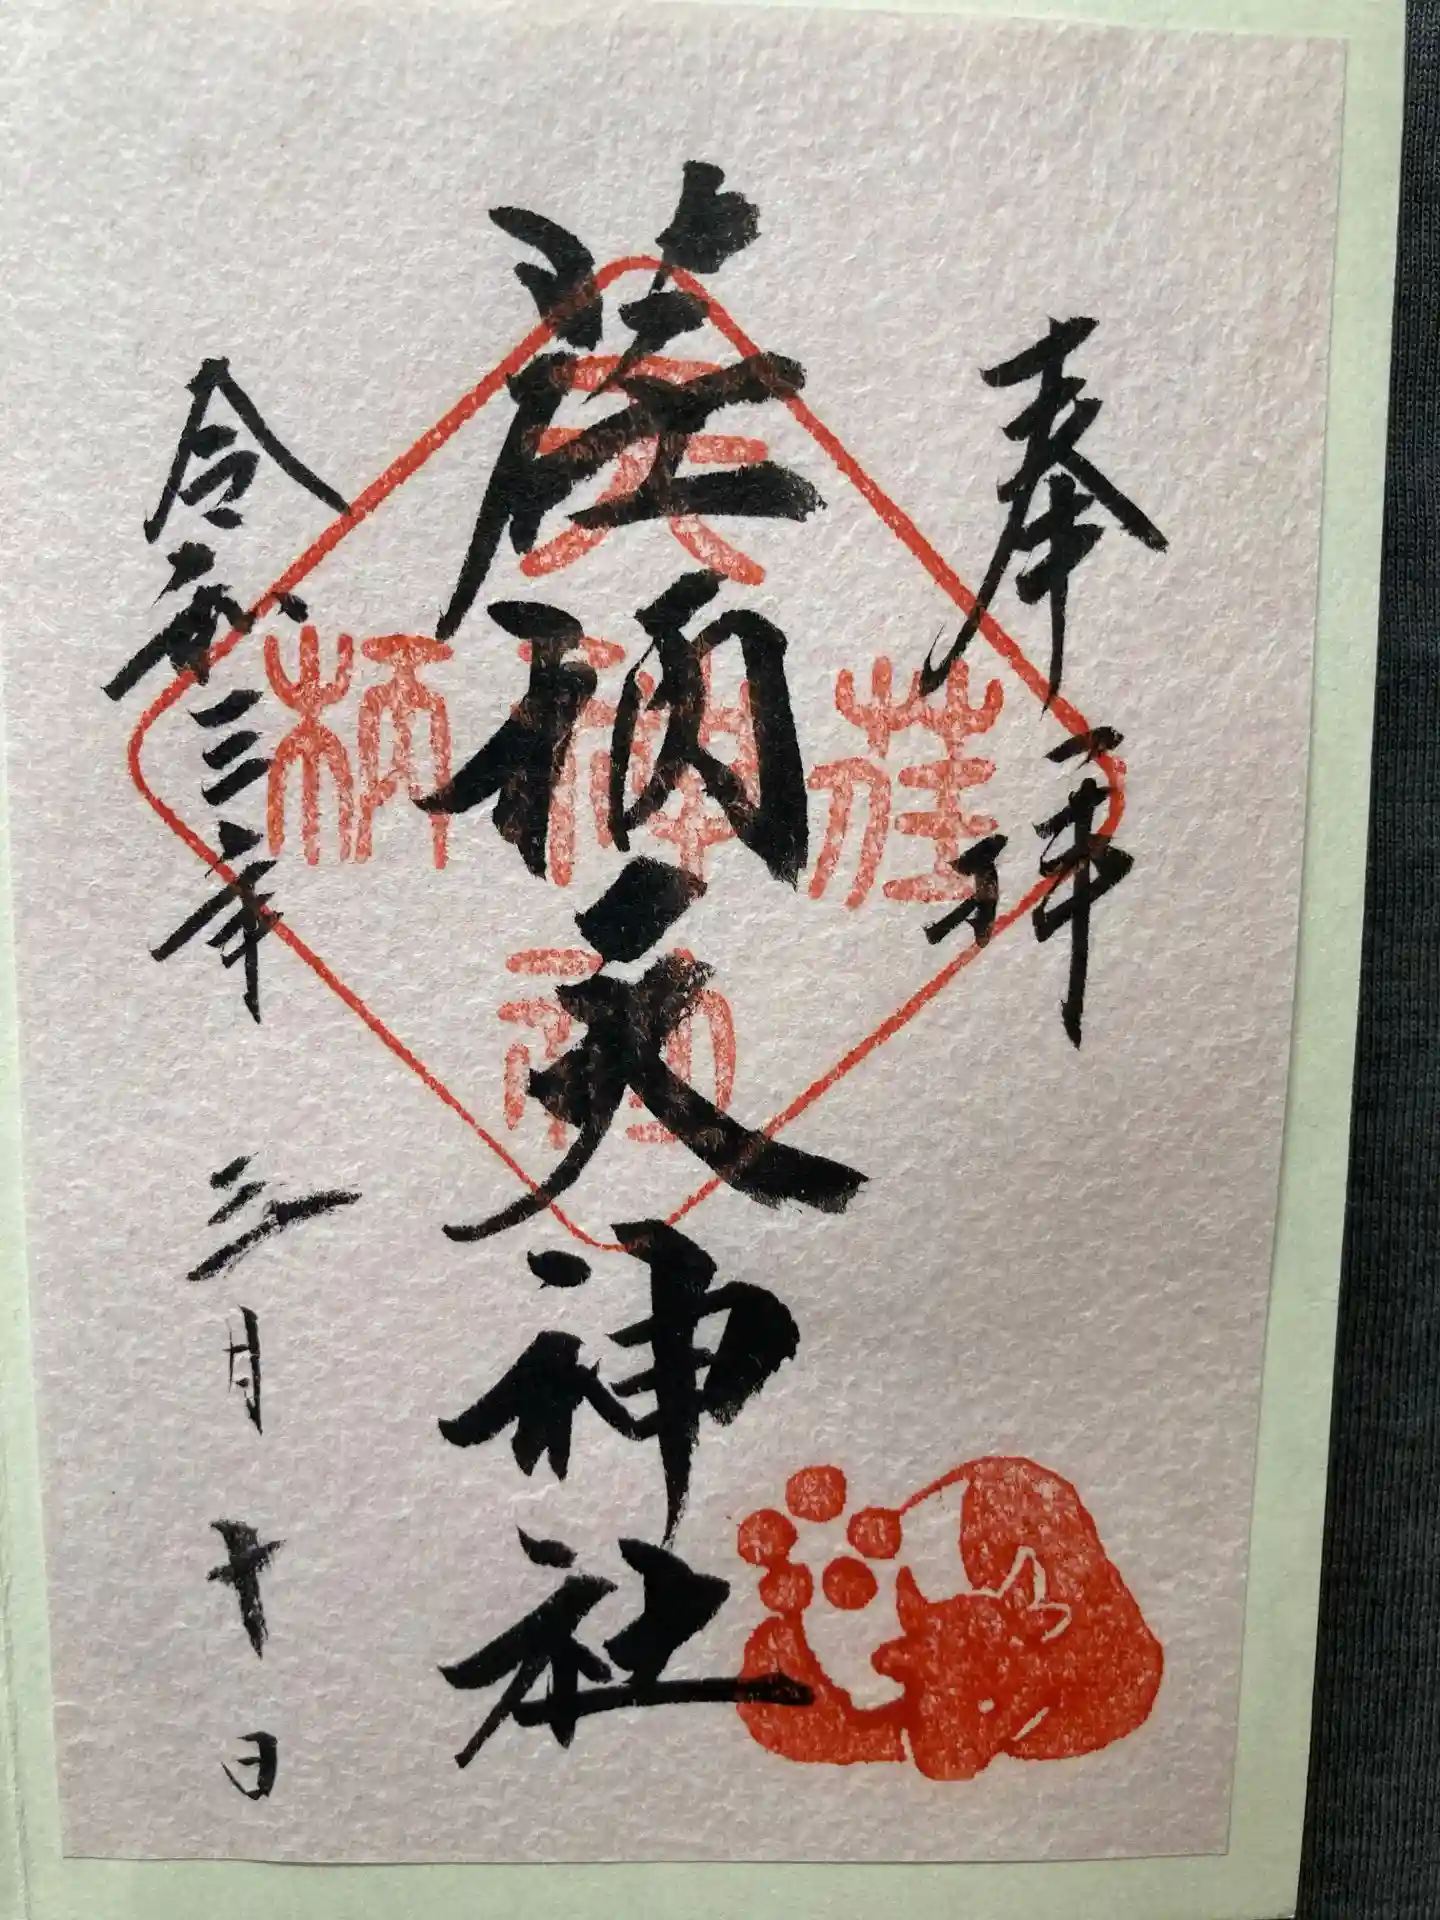 奉拝
荏柄天神社
令和三年 三月十日
天
荏神柄
社